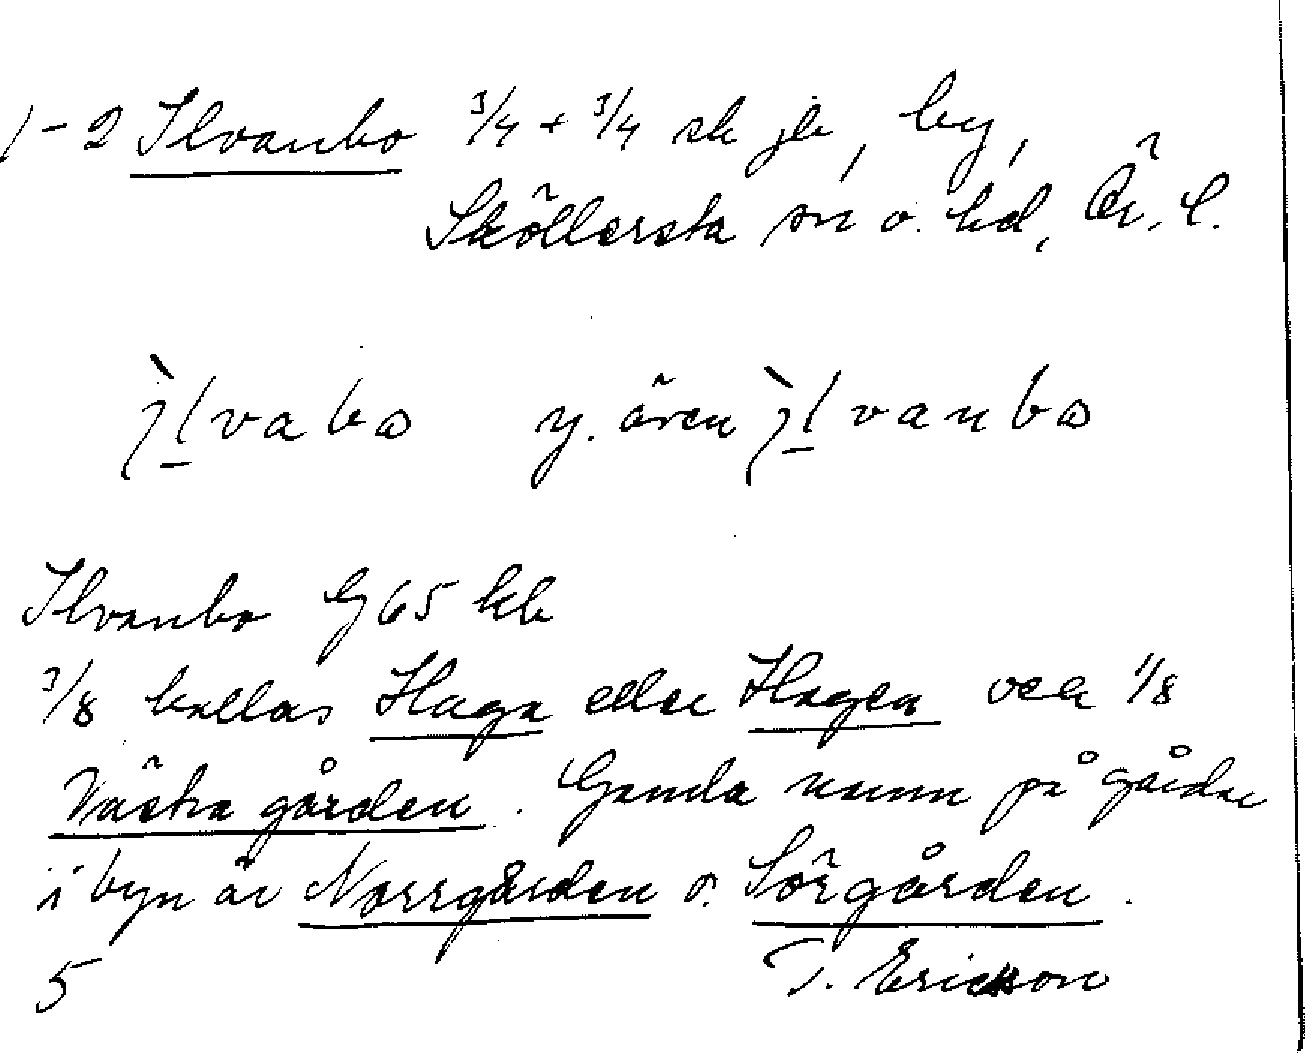 1-2 Ilvanbo 3/4 + 3/4 sk jb, by,
Sköllersta sn o. hd, Ör. l.
ı̀lvabo y. ären ı̀lvanbo
Ilvanbo G65 kb
3/8 kallas Haga eller Hagen och 1/8
Västra gården. Gamla namn på gårdar
i byn är Norrgården o. Sörgården.
5 T. Ericsson